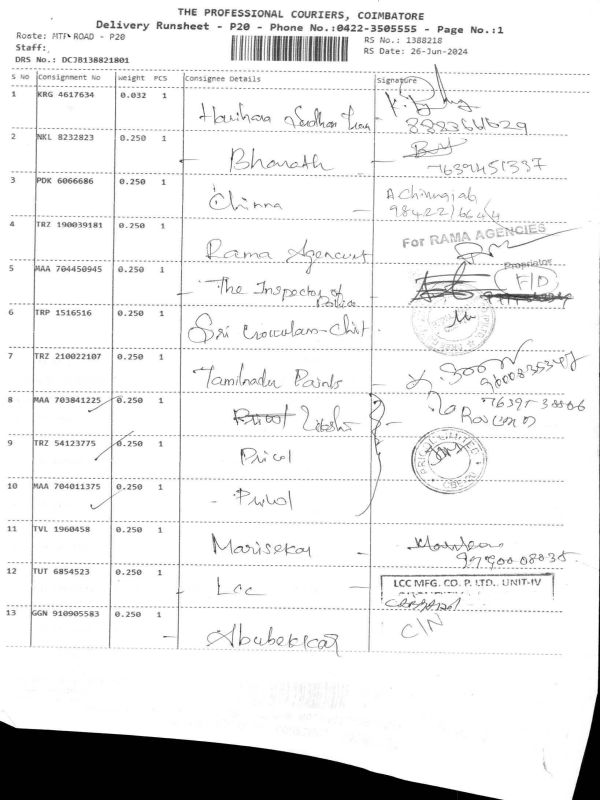 THE PROFESSIONAL COURIERS, COIMBATORE
Delivery Runsheet - P20 - Phone No.:0422-3505555 - Page No.:1
Route: MTP ROAD - P20 RS No.: 1388218
Staff: RS Date: 26-Jun-2024
DRS No.: DCJB138821801
S No Consignment No Weight PCS Consignee Details Signature
1 KRG 4617634 0.032 1
2 NKL 8232823 0.250 1 Bharath 7639451337
3 PDK 6066686 0.250 1 Chinna
4 TRZ 190039181 0.250 1 Rama Agency For RAMA AGENCIES
Proprietor
5 MAA 704450945 0.250 1 The Inspector of Police
6 TRP 1516516 0.250 1 Sri
7 TRZ 210022107 0.250 1 Tamilnadu Paints
8 MAA 703841225 0.250 1
9 TRZ 54123775 0.250 1 Pricol PRICOL LIMITED
10 MAA 704011375 0.250 1 Pricol
11 TVL 1960458 0.250 1 Marisekar
12 TUT 6854523 0.250 1 Lcc LCC MFG. CO. P. LTD., UNIT-IV
13 GGN 910905583 0.250 1 Abubekkar C/N